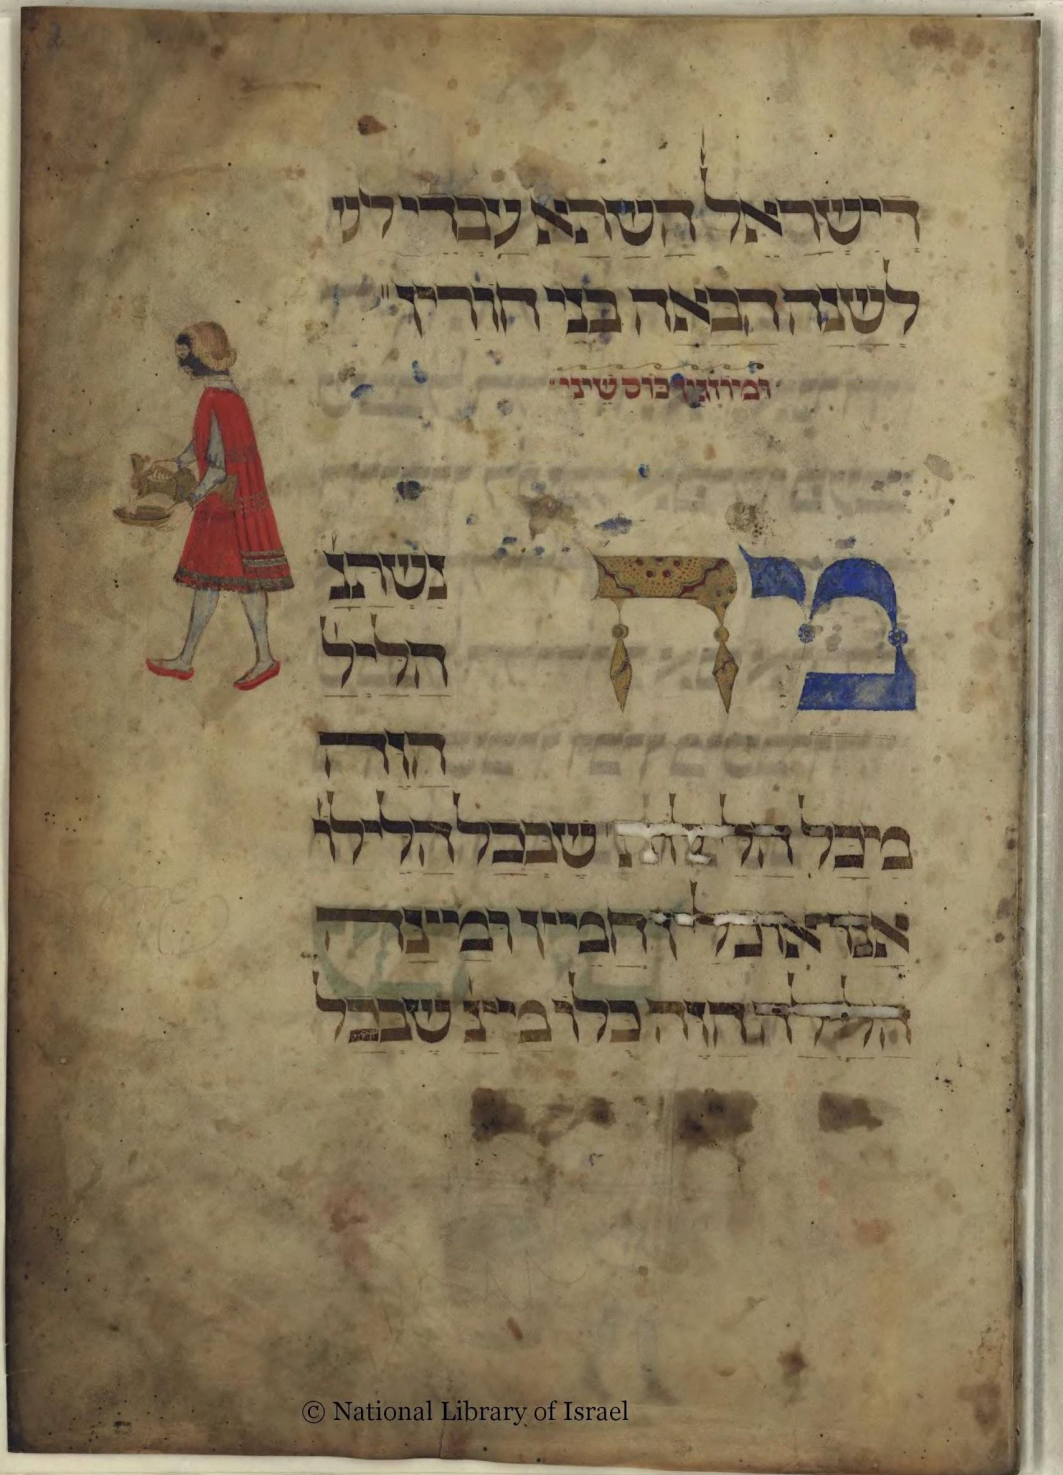 2
דישראל השתא עבדי לש
לשנה הבאה בני חורין
ומוזגין כוס שיני
מה נשתנ
הליל
הזה
מכל הלילות שבכל הלילו
אנו אוכלין חמיץ ומיצה
הלילה הזה כלו מיצ שבכל
© National Library of Israel